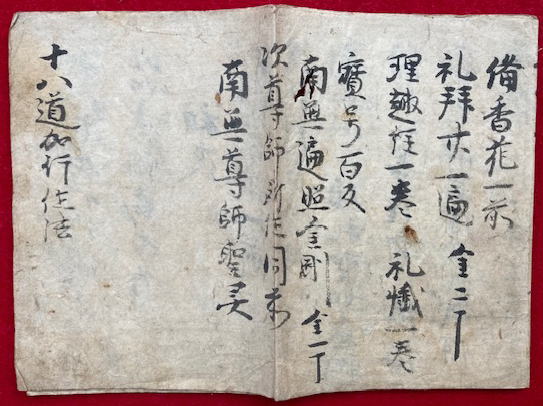 備香花一前
礼拜廿一遍 金二丁
理趣経一巻 礼懺一巻
寳号百反
南無遍照金剛 金一丁
次尊師所作同前
南無尊師聖灵
十八道加行作法